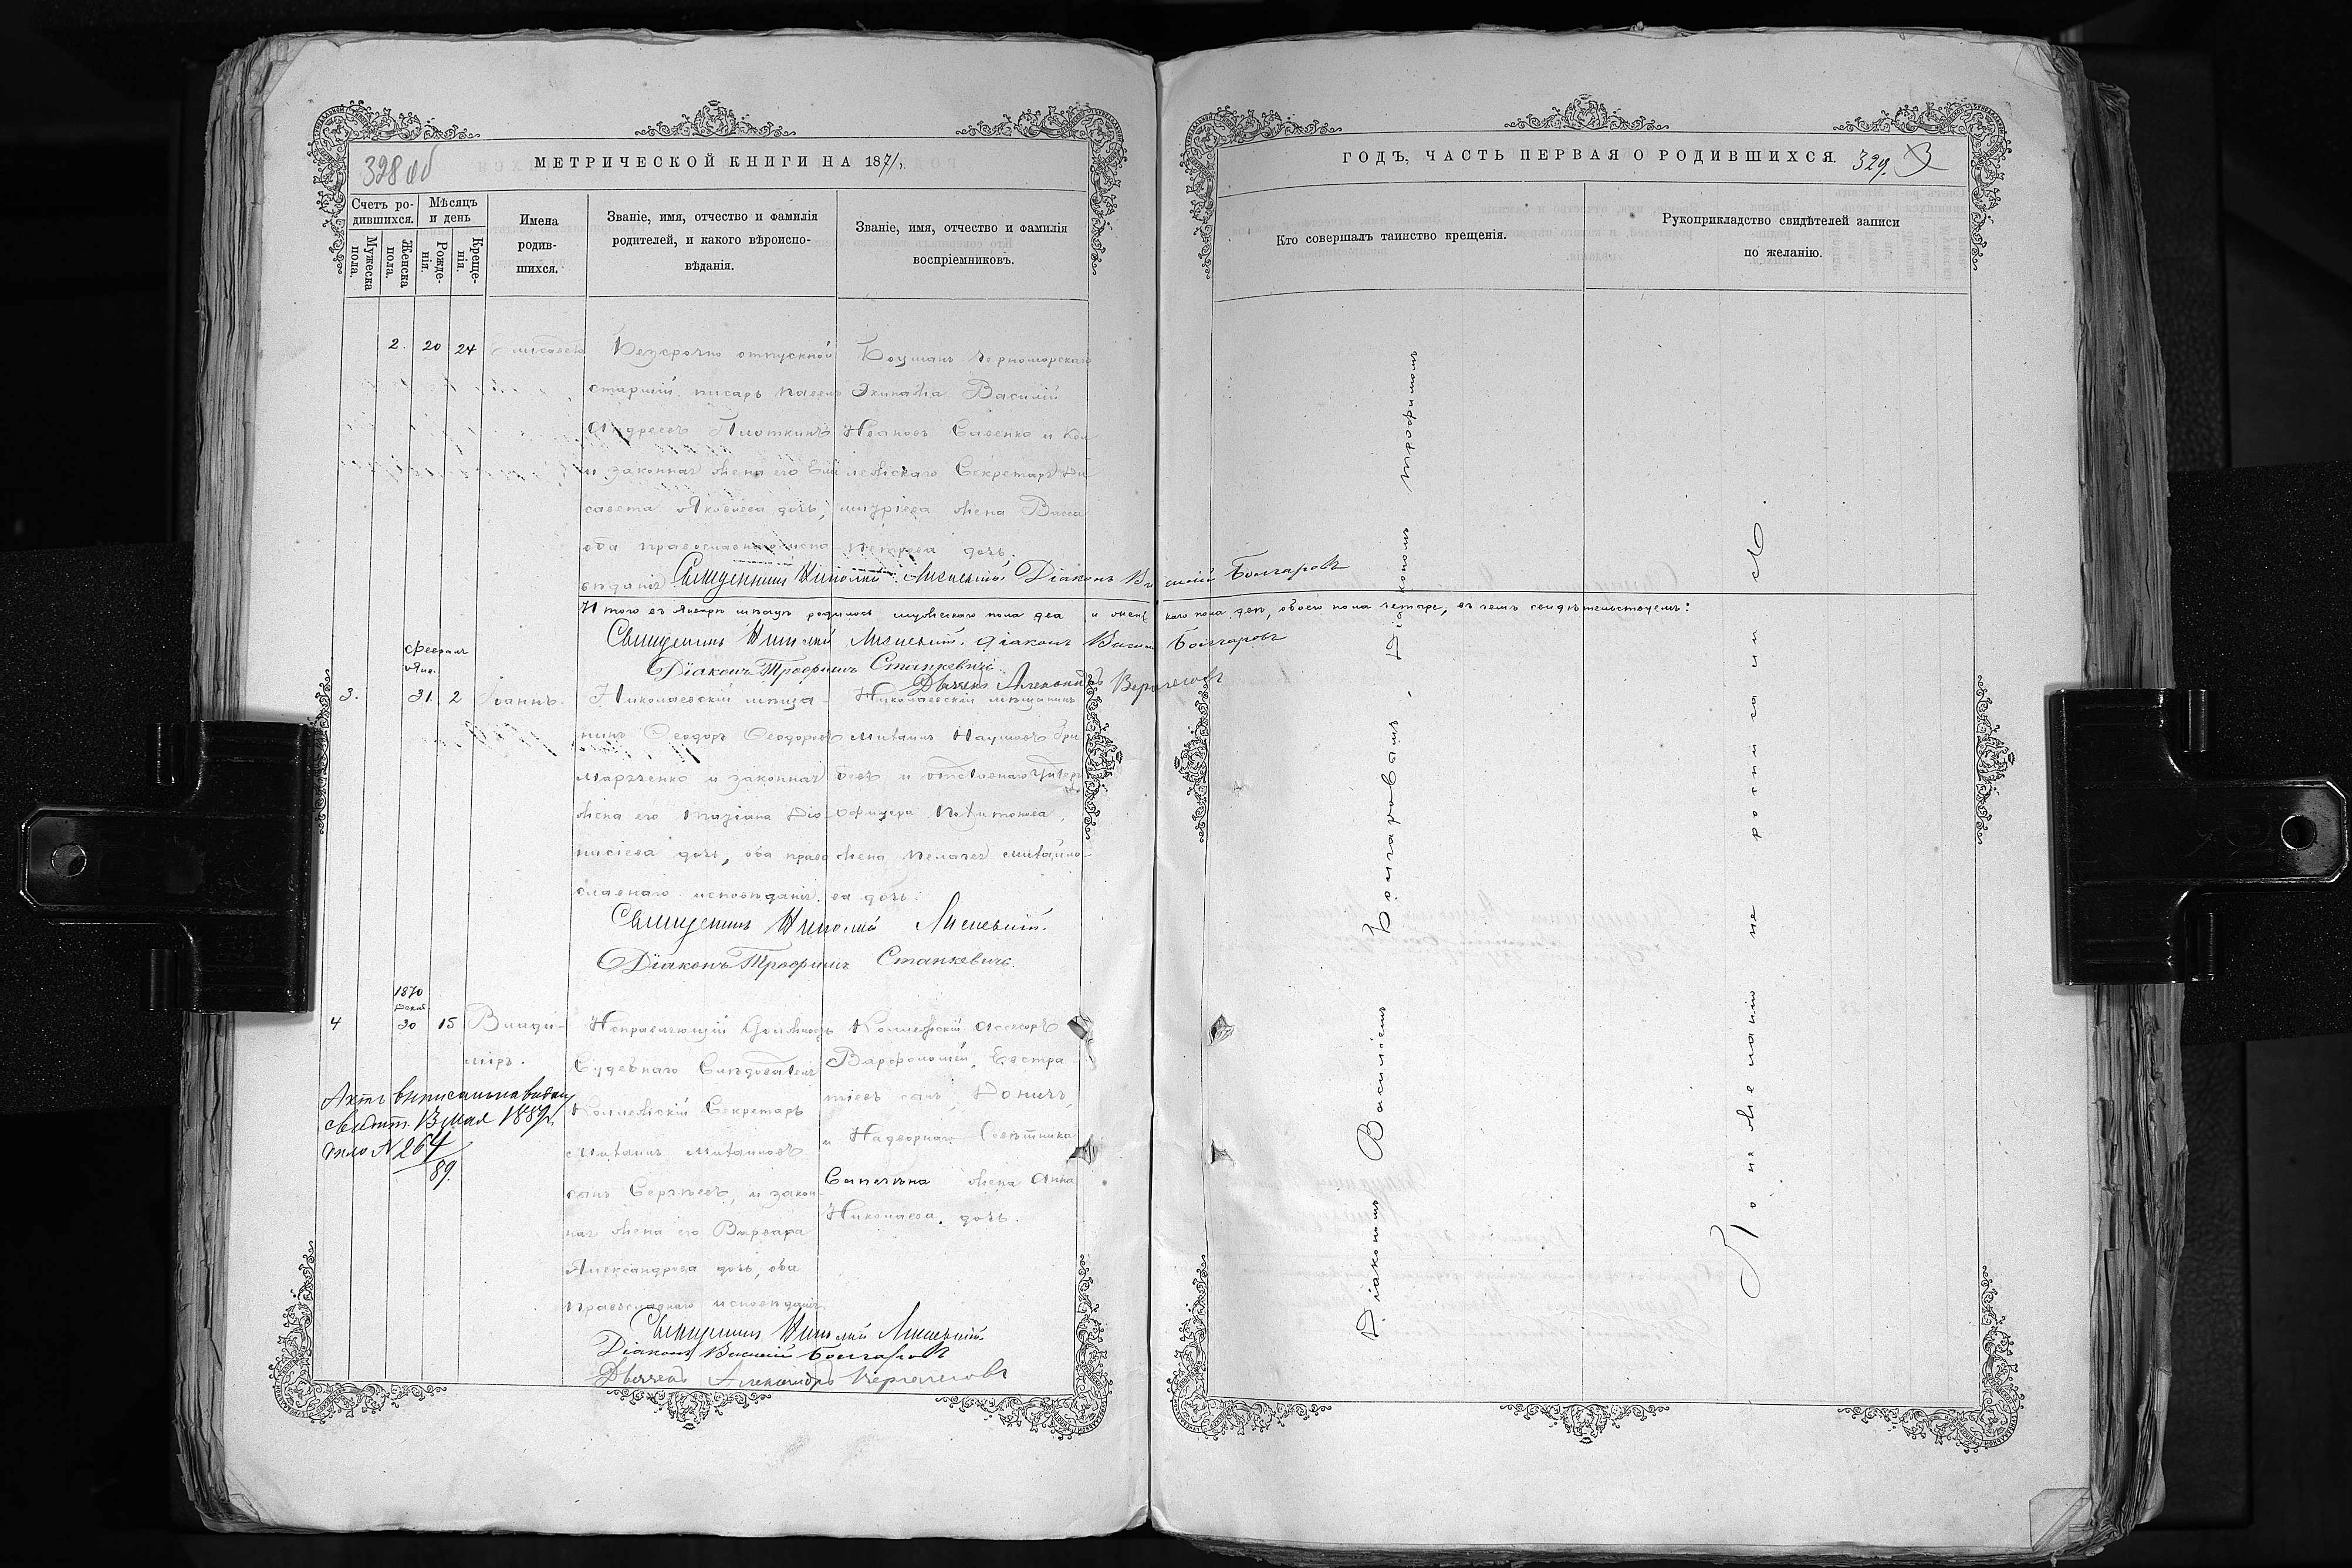 328 об
МЕТРИЧЕСКОЙ КНИГИ НА 1871 г.
Счетъ ро-
дившихся.
Мѣсяцъ
и день
Мужеска
пола.
Женска
пола.
Рожде-
нія.
Креще-
нія.
Имена
родив-
шихся.
Званіе, имя, отчество и фамилія
родителей, и какого вѣроиспо-
вѣданія.
Званіе, имя, отчество и фамилія
воспріемниковъ.
2. 20 24 Елисавета
Безсрочно отпускной
старшій писарь Павелъ
Андреевъ Плоткинъ
и законная жена его Ели
савета Яковлева дочь,
оба православнаго испо
вѣданія
Боцманъ Черноморскаго
Экипажа Василій
Ивановъ Савенко и Кол
лежскаго Секретаря Ди
митріева жена Васса
Петрова дочь.
Священникъ Николай Діаконъ Василій Болгаровъ
Итого въ Январѣ мѣсяцѣ родилось мужескаго пола два и женскаго пола двѣ, обоего пола четыре, въ чемъ свидѣтельствуемъ:
Священникъ Николай Діаконъ Василій Болгаровъ
Діаконъ Трофимъ Станкевичъ.
Дьячекъ Александръ
Февраль
Янв.
3. 31. 2 Іоаннъ.
Николаевскій мѣща-
нинъ Ѳеодоръ Ѳеодоровъ
Марченко и законная
жена его Татіана Діо-
нисіева дочь, оба право
славнаго исповѣданія.
Николаевскій мѣщанинъ
Михаилъ Наумовъ
и отставнаго Унтеръ
Офицера
жена Пелагея Михайло-
ва дочь.
Священникъ Николай
Діаконъ Трофимъ Станкевичъ.
1870
Декаб
4 30 15 Влади-
міръ.
Исправляющій Должность
Судебнаго Слѣдователя
Коллежскій Секретарь
Михаилъ Михаиловъ
сынъ Сергѣевъ, и закон-
ная жена его Варвара
Александрова дочь, оба
православнаго исповѣданія.
Коллежскій Ассесоръ
Варфоломей Евстра-
тіевъ сынъ Доничъ,
и Надворнаго Совѣтника
жена Анна
Николаева дочь.
Актъ выписанъ на выдачу
свидѣт. 13 мая 1889 г.
дѣло № 264
89.
Священникъ Николай
Діаконъ Василій Болгаровъ
Дьячекъ Александръ
ГОДЪ, ЧАСТЬ ПЕРВАЯ О РОДИВШИХСЯ.
329.
3
Кто совершалъ таинство крещенія.
Рукоприкладство свидѣтелей записи
по желанію.
Діакономъ Василіемъ Болгаровымъ, Діакономъ Трофимомъ
По желанію не росписали